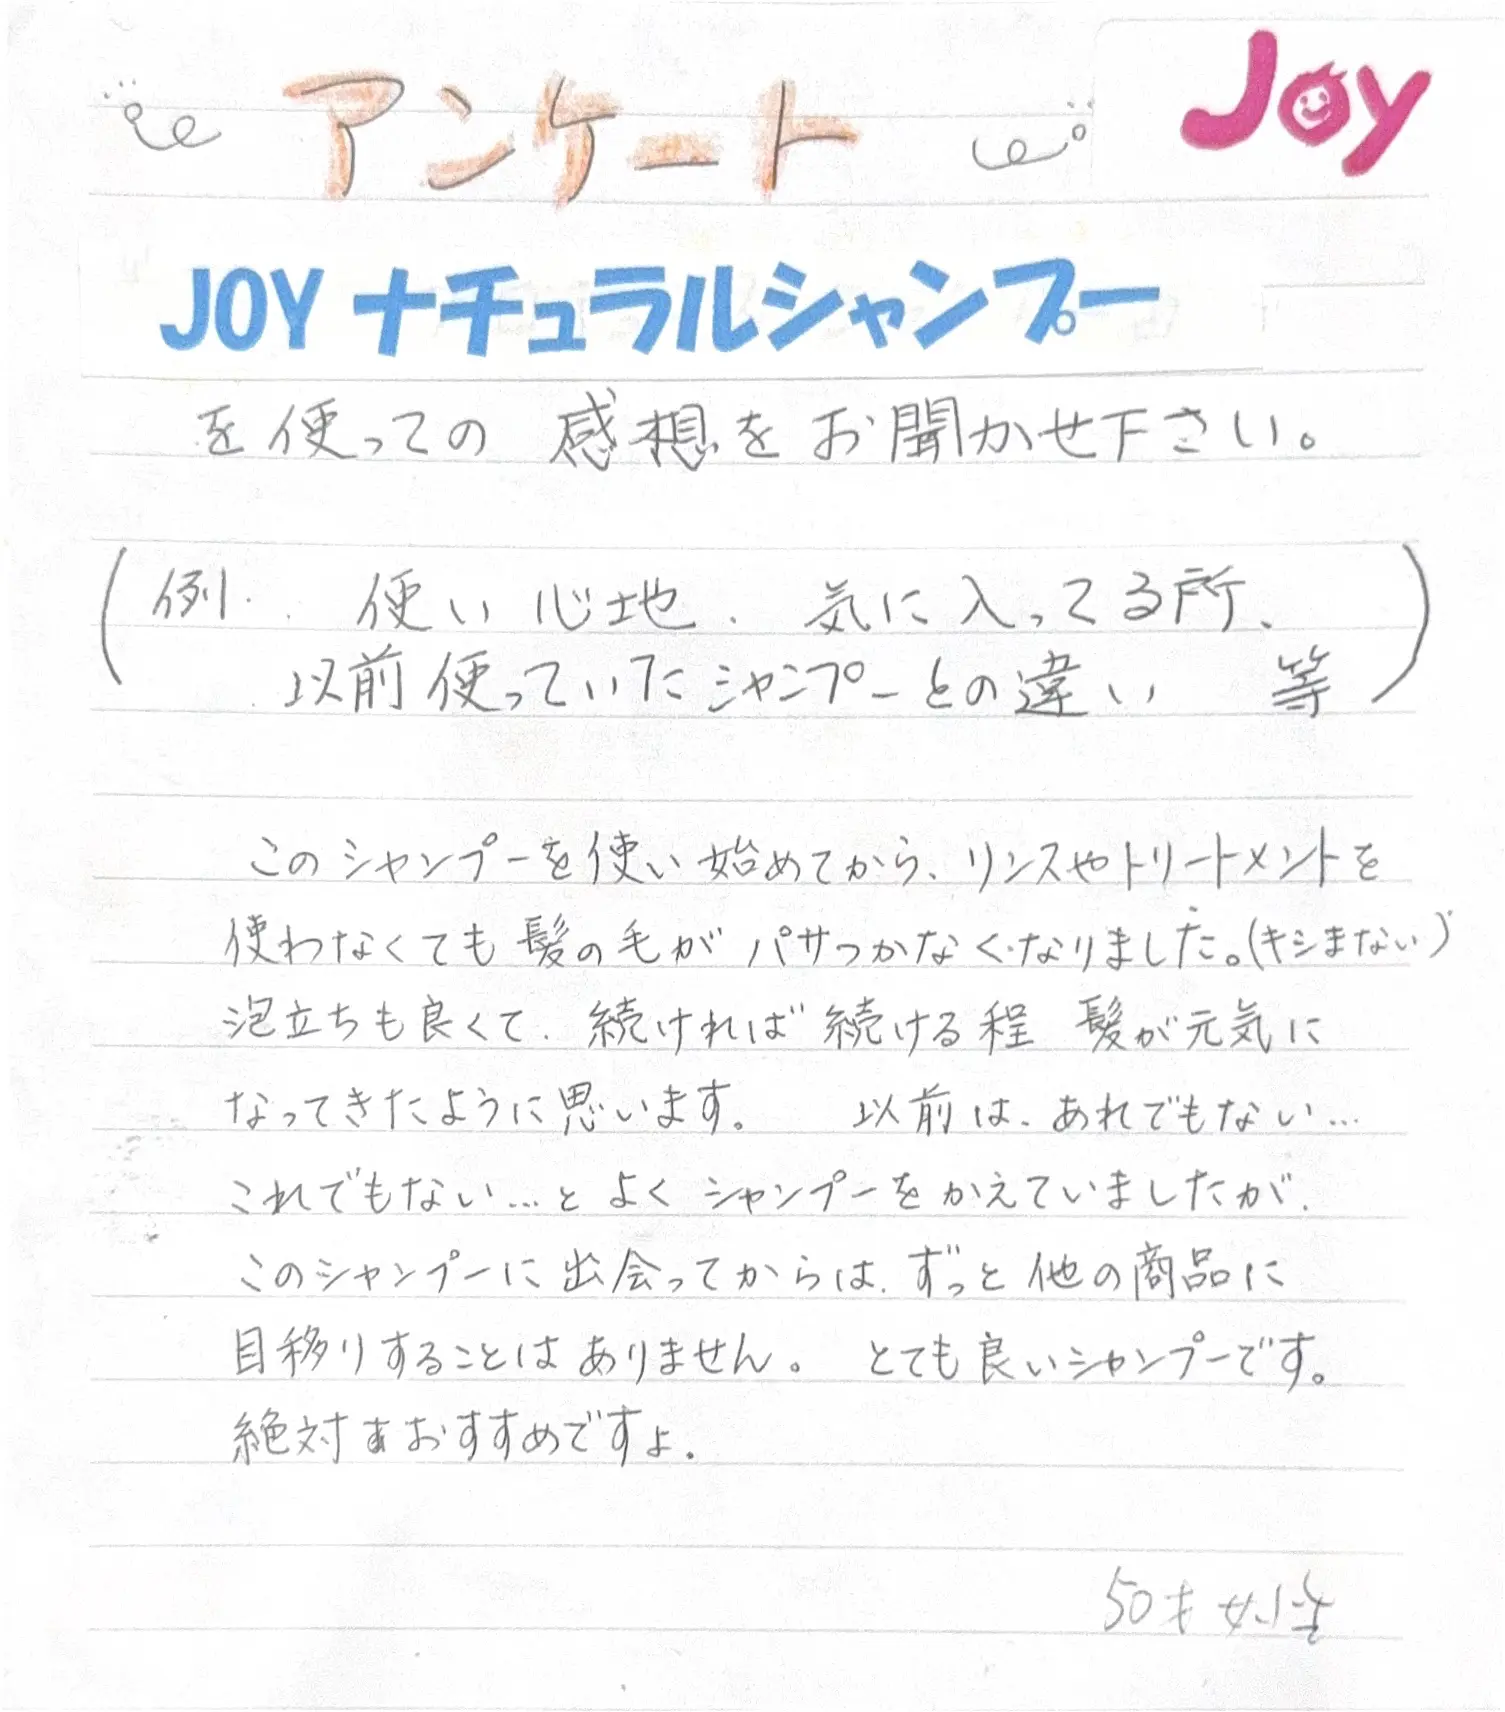 アンケート
Joy
JOY ナチュラルシャンプー
を使っての 感想をお聞かせ下さい。
(例. . 使い心地. 気に入ってる所、
以前使っていたシャンプーとの違い 等)
このシャンプーを使い始めてから、リンスやトリートメントを
使わなくても髪の毛がパサつかなくなりました。(キシまない)
泡立ちも良くて、続ければ続ける程 髪が元気に
なってきたように思います。 以前は、あれでもない…
これでもない…と よくシャンプーをかえていましたが、
このシャンプーに出会ってからは、ずっと他の商品に
目移りすることはありません。 とても良いシャンプーです。
絶対 おすすめですよ.
50才女性